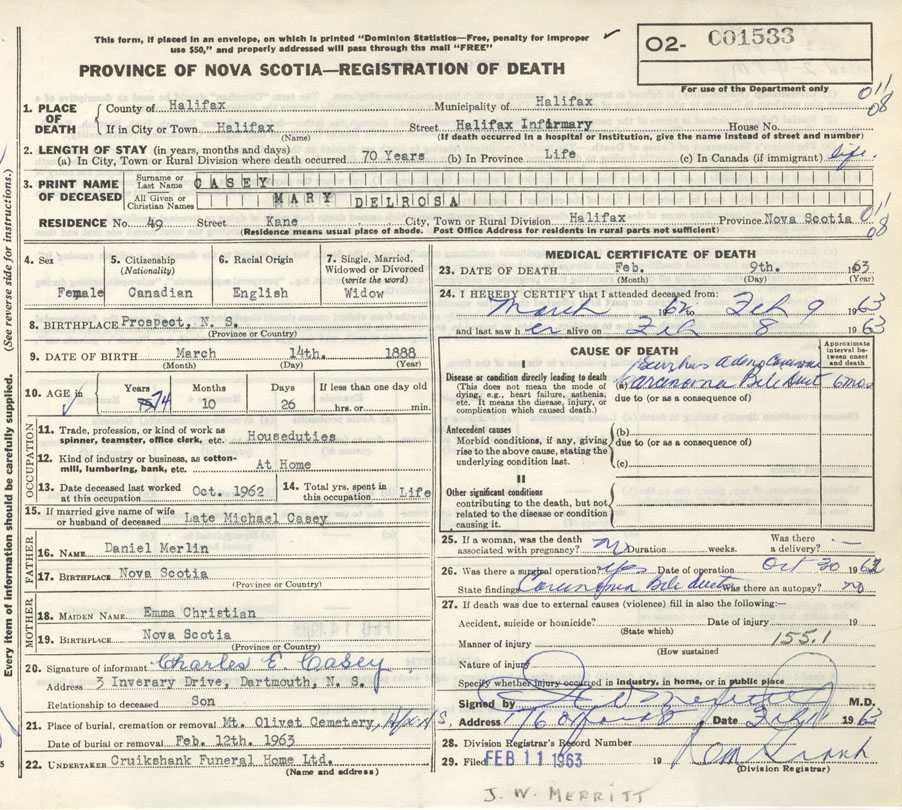 This form, if placed in an envelope, on which is printed "Dominion Statistics—Free, penalty for improper
use $50," and properly addressed will pass through the mail "FREE"
O2- C01533
PROVINCE OF NOVA SCOTIA—REGISTRATION OF DEATH
For use of the Department only
011
08
1. PLACE OF DEATH
County of Halifax Municipality of Halifax
If in City or Town Halifax Street Halifax Infirmary House No.
(Name) (If death occurred in a hospital or institution, give the name instead of street and number)
2. LENGTH OF STAY (in years, months and days)
(a) In City, Town or Rural Division where death occurred 70 Years (b) In Province Life (c) In Canada (if immigrant) life.
3. PRINT NAME OF DECEASED
Surname or Last Name CASEY
All Given or Christian Names MARY DELROSA
RESIDENCE No. 49 Street Kane City, Town or Rural Division Halifax Province Nova Scotia
(Residence means usual place of abode. Post Office Address for residents in rural parts not sufficient)
011
08
(See reverse side for instructions.)
Every item of information should be carefully supplied.
4. Sex
Female
5. Citizenship
(Nationality)
Canadian
6. Racial Origin
English
7. Single, Married,
Widowed or Divorced
(write the word)
Widow
8. BIRTHPLACE Prospect, N. S.
(Province or Country)
9. DATE OF BIRTH March 14th. 1888
(Month) (Day) (Year)
10. AGE in
Years 74
Months 10
Days 26
If less than one day old
hrs. or min.
OCCUPATION
11. Trade, profession or kind of work as
spinner, teamster, office clerk, etc. Houseduties
12. Kind of industry or business, as cotton-
mill, lumbering, bank, etc. At Home
13. Date deceased last worked
at this occupation Oct. 1962
14. Total yrs. spent in
this occupation Life
15. If married give name of wife
or husband of deceased Late Michael Casey
FATHER
16. NAME Daniel Merlin
17. BIRTHPLACE Nova Scotia
(Province or Country)
MOTHER
18. MAIDEN NAME Emma Christian
19. BIRTHPLACE Nova Scotia
(Province or Country)
20. Signature of informant Charles E. Casey
Address 3 Inverary Drive, Dartmouth, N. S.
Relationship to deceased Son
21. Place of burial, cremation or removal Mt. Olivet Cemetery,
Date of burial or removal Feb. 12th. 1963
22. UNDERTAKER Cruikshank Funeral Home Ltd.
(Name and address)
MEDICAL CERTIFICATE OF DEATH
23. DATE OF DEATH Feb. 9th. 1963
(Month) (Day) (Year)
24. I HEREBY CERTIFY that I attended deceased from:
March 62 to Feb 9 1963
and last saw her alive on Feb 8 1963
CAUSE OF DEATH
Approximate interval between onset and death
I
Disease or condition directly leading to death
(This does not mean the mode of
dying, e.g., heart failure, asthenia,
etc. It means the disease, injury, or
complication which caused death.)
Scirrhus Adeno Carcinoma
(a) Carcinoma Bile Duct 6 mos
due to (or as a consequence of)
Antecedent causes
Morbid conditions, if any, giving
rise to the above cause, stating the
underlying condition last.
(b)
due to (or as a consequence of)
(c)
II
Other significant conditions
contributing to the death, but not
related to the disease or condition
causing it.
25. If a woman, was the death
associated with pregnancy? no Duration weeks. Was there
a delivery? —
26. Was there a surgical operation? yes Date of operation Oct 30 1962
State findings Carcinoma Bile duct Was there an autopsy? no
27. If death was due to external causes (violence) fill in also the following:—
Accident, suicide or homicide? Date of injury 19
(State which)
Manner of injury 155.1
(How sustained
Nature of injury
Specify whether injury occurred in industry, in home, or in public place
Signed by M.D.
Address Date 1963
28. Division Registrar's Record Number
29. Filed FEB 11 1963 19
(Division Registrar)
J. W. MERRITT